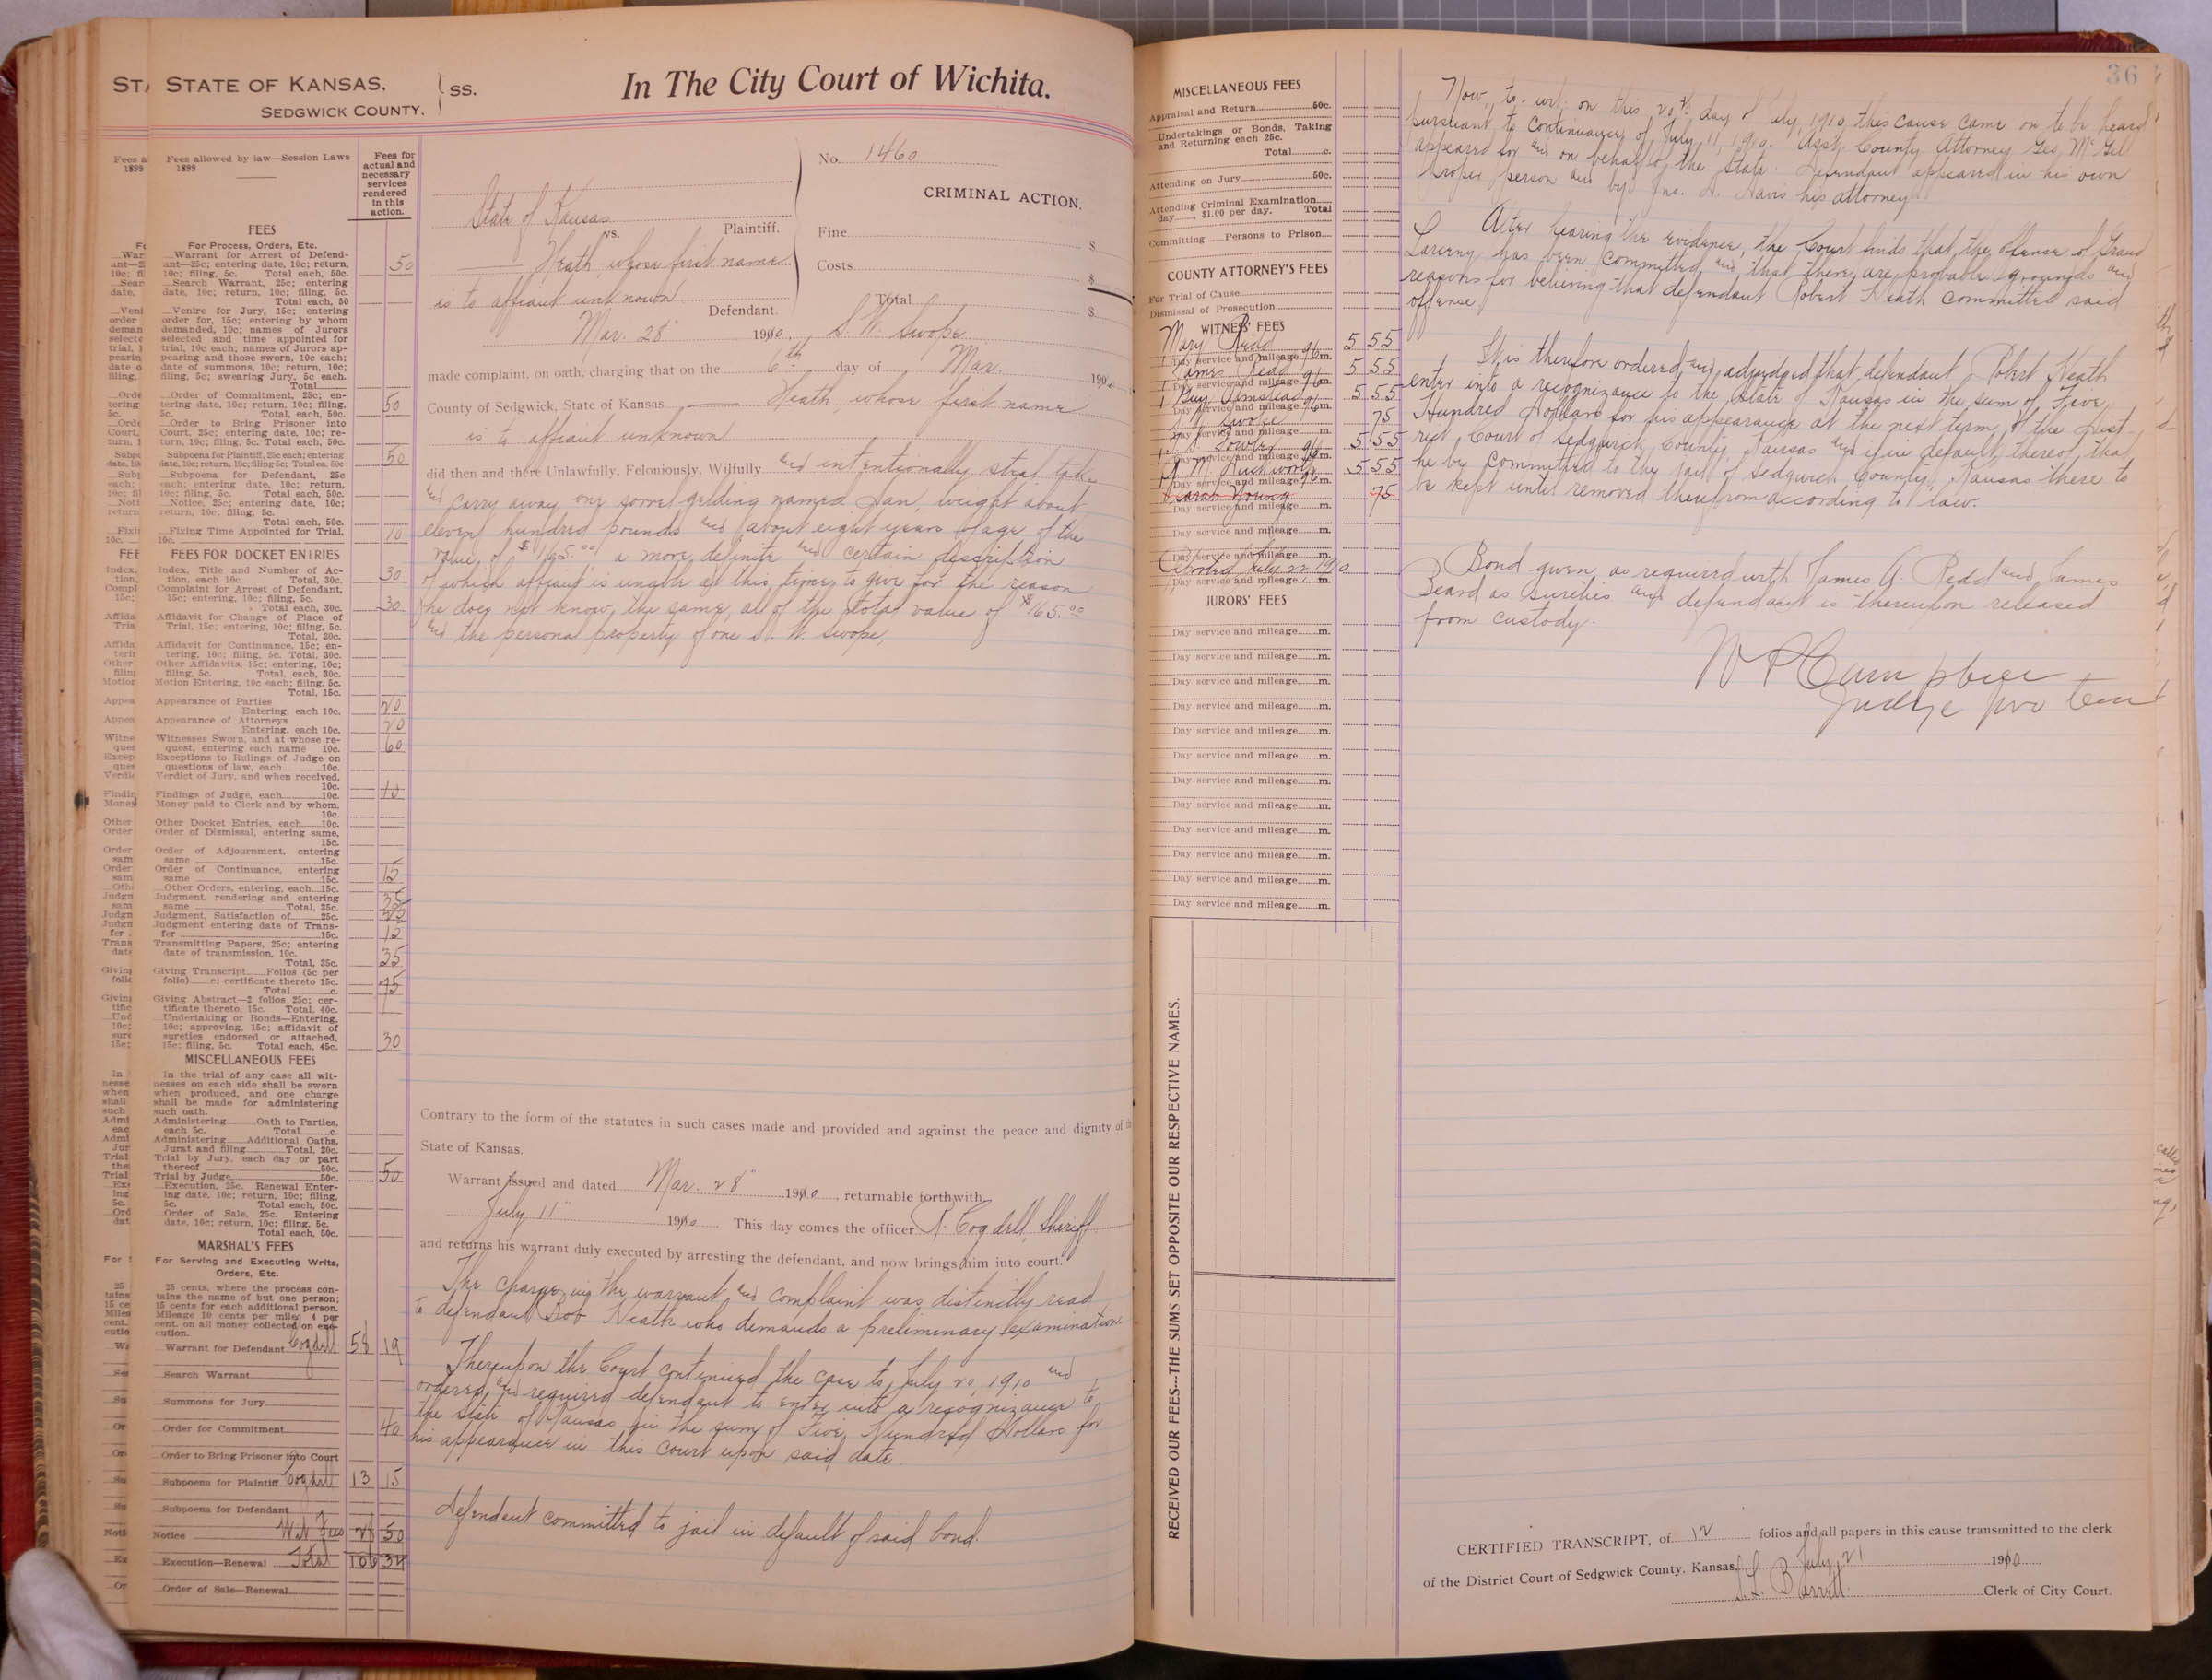 STATE OF KANSAS,
SEDGWICK COUNTY.
SS.
In The City Court of Wichita.
Fees allowed by law—Session Laws
1899
Fees for
actual and
necessary
services
rendered
in this
action.
FEES
For Process, Orders, Etc.
Warrant for Arrest of Defend-
ant—25c; entering date, 10c; return,
10c; filing, 5c. Total each, 50c. 50
Search Warrant, 25c; entering
date, 10c; return, 10c; filing, 5c.
Total each, 50
Venire for Jury, 15c; entering
order for, 15c; entering by whom
demanded, 10c; names of Jurors
selected and time appointed for
trial, 10c each; names of Jurors ap-
pearing and those sworn, 10c each;
date of summons, 10c; return, 10c;
filing, 5c; swearing Jury, 5c each.
Total
Order of Commitment, 25c; en-
tering date, 10c; return, 10c; filing,
5c. Total each, 50c. 50
Order to Bring Prisoner into
Court, 25c; entering date, 10c; re-
turn, 10c; filing, 5c. Total each, 50c.
Subpoena for Plaintiff, 25c each; entering
date, 10c; return, 10c; filing 5c; Total ea. 50c 50
Subpoena for Defendant, 25c
each; entering date, 10c; return,
10c; filing, 5c. Total each, 50c.
Notice, 25c; entering date, 10c;
return, 10c; filing, 5c.
Total each, 50c.
Fixing Time Appointed for Trial,
10c. 10
FEES FOR DOCKET ENTRIES
Index, Title and Number of Ac-
tion, each 10c. Total, 30c. 30
Complaint for Arrest of Defendant,
15c; entering, 10c; filing, 5c.
Total each, 30c. 30
Affidavit for Change of Place of
Trial, 15c; entering, 10c; filing, 5c.
Total, 30c.
Affidavit for Continuance, 15c; en-
tering, 10c; filing, 5c. Total, 30c.
Other Affidavits, 15c; entering, 10c;
filing, 5c. Total, each, 30c.
Motion Entering, 10c each; filing, 5c.
Total, 15c.
Appearance of Parties
Entering, each 10c. 20
Appearance of Attorneys
Entering, each 10c. 20
Witnesses Sworn, and at whose re-
quest, entering each name 10c. 60
Exceptions to Rulings of Judge on
questions of law, each 10c.
Verdict of Jury, and when received,
10c.
Findings of Judge, each 10c. 10
Money paid to Clerk and by whom,
10c.
Other Docket Entries, each 10c.
Order of Dismissal, entering same,
15c.
Order of Adjournment, entering
same 15c.
Order of Continuance, entering
same 15c. 15
Other Orders, entering, each 15c.
Judgment, rendering and entering
same Total, 35c. 35
Judgment, Satisfaction of 25c.
Judgment entering date of Trans-
fer 15c.
Transmitting Papers, 25c; entering
date of transmission, 10c.
Total, 35c. 35
Giving Transcript Folios (5c per
folio) c; certificate thereto 15c.
Total c. 75
Giving Abstract—2 folios 25c; cer-
tificate thereto, 15c. Total, 40c.
Undertaking or Bonds—Entering,
10c; approving, 15c; affidavit of
sureties endorsed or attached,
15c; filing, 5c. Total each, 45c. 30
MISCELLANEOUS FEES
In the trial of any case all wit-
nesses on each side shall be sworn
when produced, and one charge
shall be made for administering
such oath.
Administering Oath to Parties,
each 5c. Total c.
Administering Additional Oaths,
Jurat and filing Total, 20c.
Trial by Jury, each day or part
thereof 50c.
Trial by Judge 50c. 50
Execution, 25c. Renewal Enter-
ing date, 10c; return, 10c; filing,
5c. Total each, 50c.
Order of Sale, 25c. Entering
date, 10c; return, 10c; filing, 5c.
Total each, 50c.
MARSHAL'S FEES
For Serving and Executing Writs,
Orders, Etc.
25 cents, where the process con-
tains the name of but one person;
15 cents for each additional person.
Mileage 10 cents per mile; 4 per
cent. on all money collected on exe-
cution.
Warrant for Defendant Cogdell 58 19
Search Warrant
Summons for Jury
Order for Commitment 40
Order to Bring Prisoner into Court
Subpoena for Plaintiff Cogdell 13 15
Subpoena for Defendant
Notice Wit Fees 28 50
Execution—Renewal Total 106 34
Order of Sale—Renewal
No. 1460
CRIMINAL ACTION.
State of Kansas
vs. Plaintiff.
Heath, whose first name
is to affiant unknown
Defendant.
Fine $
Costs $
Total $
Mar. 28" 1910 S. W. Swope
made complaint, on oath, charging that on the 6th day of Mar. 190
County of Sedgwick, State of Kansas Heath, whose first name
is to affiant unknown
did then and there Unlawfully, Feloniously, Wilfully and intentionally steal take
and carry away one sorrel gelding named Dan, weight about
eleven hundred pounds and about eight years of age of the
value of $165.00 a more definite and certain description
of which affiant is unable at this time to give for the reason
he does not know the same, all of the total value of $165.00
and the personal property of one S. W. Swope,
Contrary to the form of the statutes in such cases made and provided and against the peace and dignity of the
State of Kansas.
Warrant issued and dated Mar. 28" 1910, returnable forthwith
July 11" 1910 This day comes the officer R. Cogdell, Sheriff
and returns his warrant duly executed by arresting the defendant, and now brings him into court.
The charge in the warrant and complaint was distinctly read
to defendant Bob Heath who demands a preliminary examination.
Thereupon the Court continued the case to July 20, 1910 and
ordered and required defendant to enter into a recognizance to
the state of Kansas in the sum of Five Hundred Dollars for
his appearance in this court upon said date.
Defendant committed to jail in default of said bond.
36
MISCELLANEOUS FEES
Appraisal and Return 50c.
Undertakings or Bonds, Taking
and Returning each 25c.
Total c.
Attending on Jury 50c.
Attending Criminal Examination
day $1.00 per day. Total
Committing Persons to Prison
COUNTY ATTORNEY'S FEES
For Trial of Cause
Dismissal of Prosecution
WITNESS' FEES
Mary Redd
1 Day service and mileage 96 m. 5 55
James Redd
1 Day service and mileage 96 m. 5 55
Guy Olmstead
1 Day service and mileage 96 m. 5 55
Swope
Day service and mileage m. 75
Lowery
1 Day service and mileage 96 m. 5 55
Day service and mileage 96 m. 5 55
Sarah Young
Day service and mileage m. 75
Day service and mileage m.
Day service and mileage m.
July 22 1910
Day service and mileage m.
JURORS' FEES
Day service and mileage m.
Day service and mileage m.
Day service and mileage m.
Day service and mileage m.
Day service and mileage m.
Day service and mileage m.
Day service and mileage m.
Day service and mileage m.
Day service and mileage m.
Day service and mileage m.
Day service and mileage m.
Day service and mileage m.
RECEIVED OUR FEES---THE SUMS SET OPPOSITE OUR RESPECTIVE NAMES.
Now, to-wit: on this 20th day of July, 1910, this cause came on to be heard
pursuant to continuance of July 11, 1910. Asst. County Attorney Geo. McGill
appeared for and on behalf of the State. Defendant appeared in his own
proper person and by Jno. D. Davis his attorney
After hearing the evidence, the Court finds that the offense of Grand
Larceny has been committed, and that there are probable grounds and
reasons for believing that defendant Robert Heath committed said
offense.
It is therefore ordered and adjudged that defendant Robert Heath
enter into a recognizance to the State of Kansas in the sum of Five
Hundred Dollars for his appearance at the next term of the Dist-
rict Court of Sedgwick County, Kansas and if in default thereof, that
he be committed to the jail of Sedgwick County, Kansas there to
be kept until removed therefrom according to law.
Bond given as required with James A. Redd and James
Beard as sureties and defendant is thereupon released
from custody.
W P Campbell
Judge pro tem
CERTIFIED TRANSCRIPT, of 12 folios and all papers in this cause transmitted to the clerk
of the District Court of Sedgwick County, Kansas, July 21 1910
Barrett Clerk of City Court.